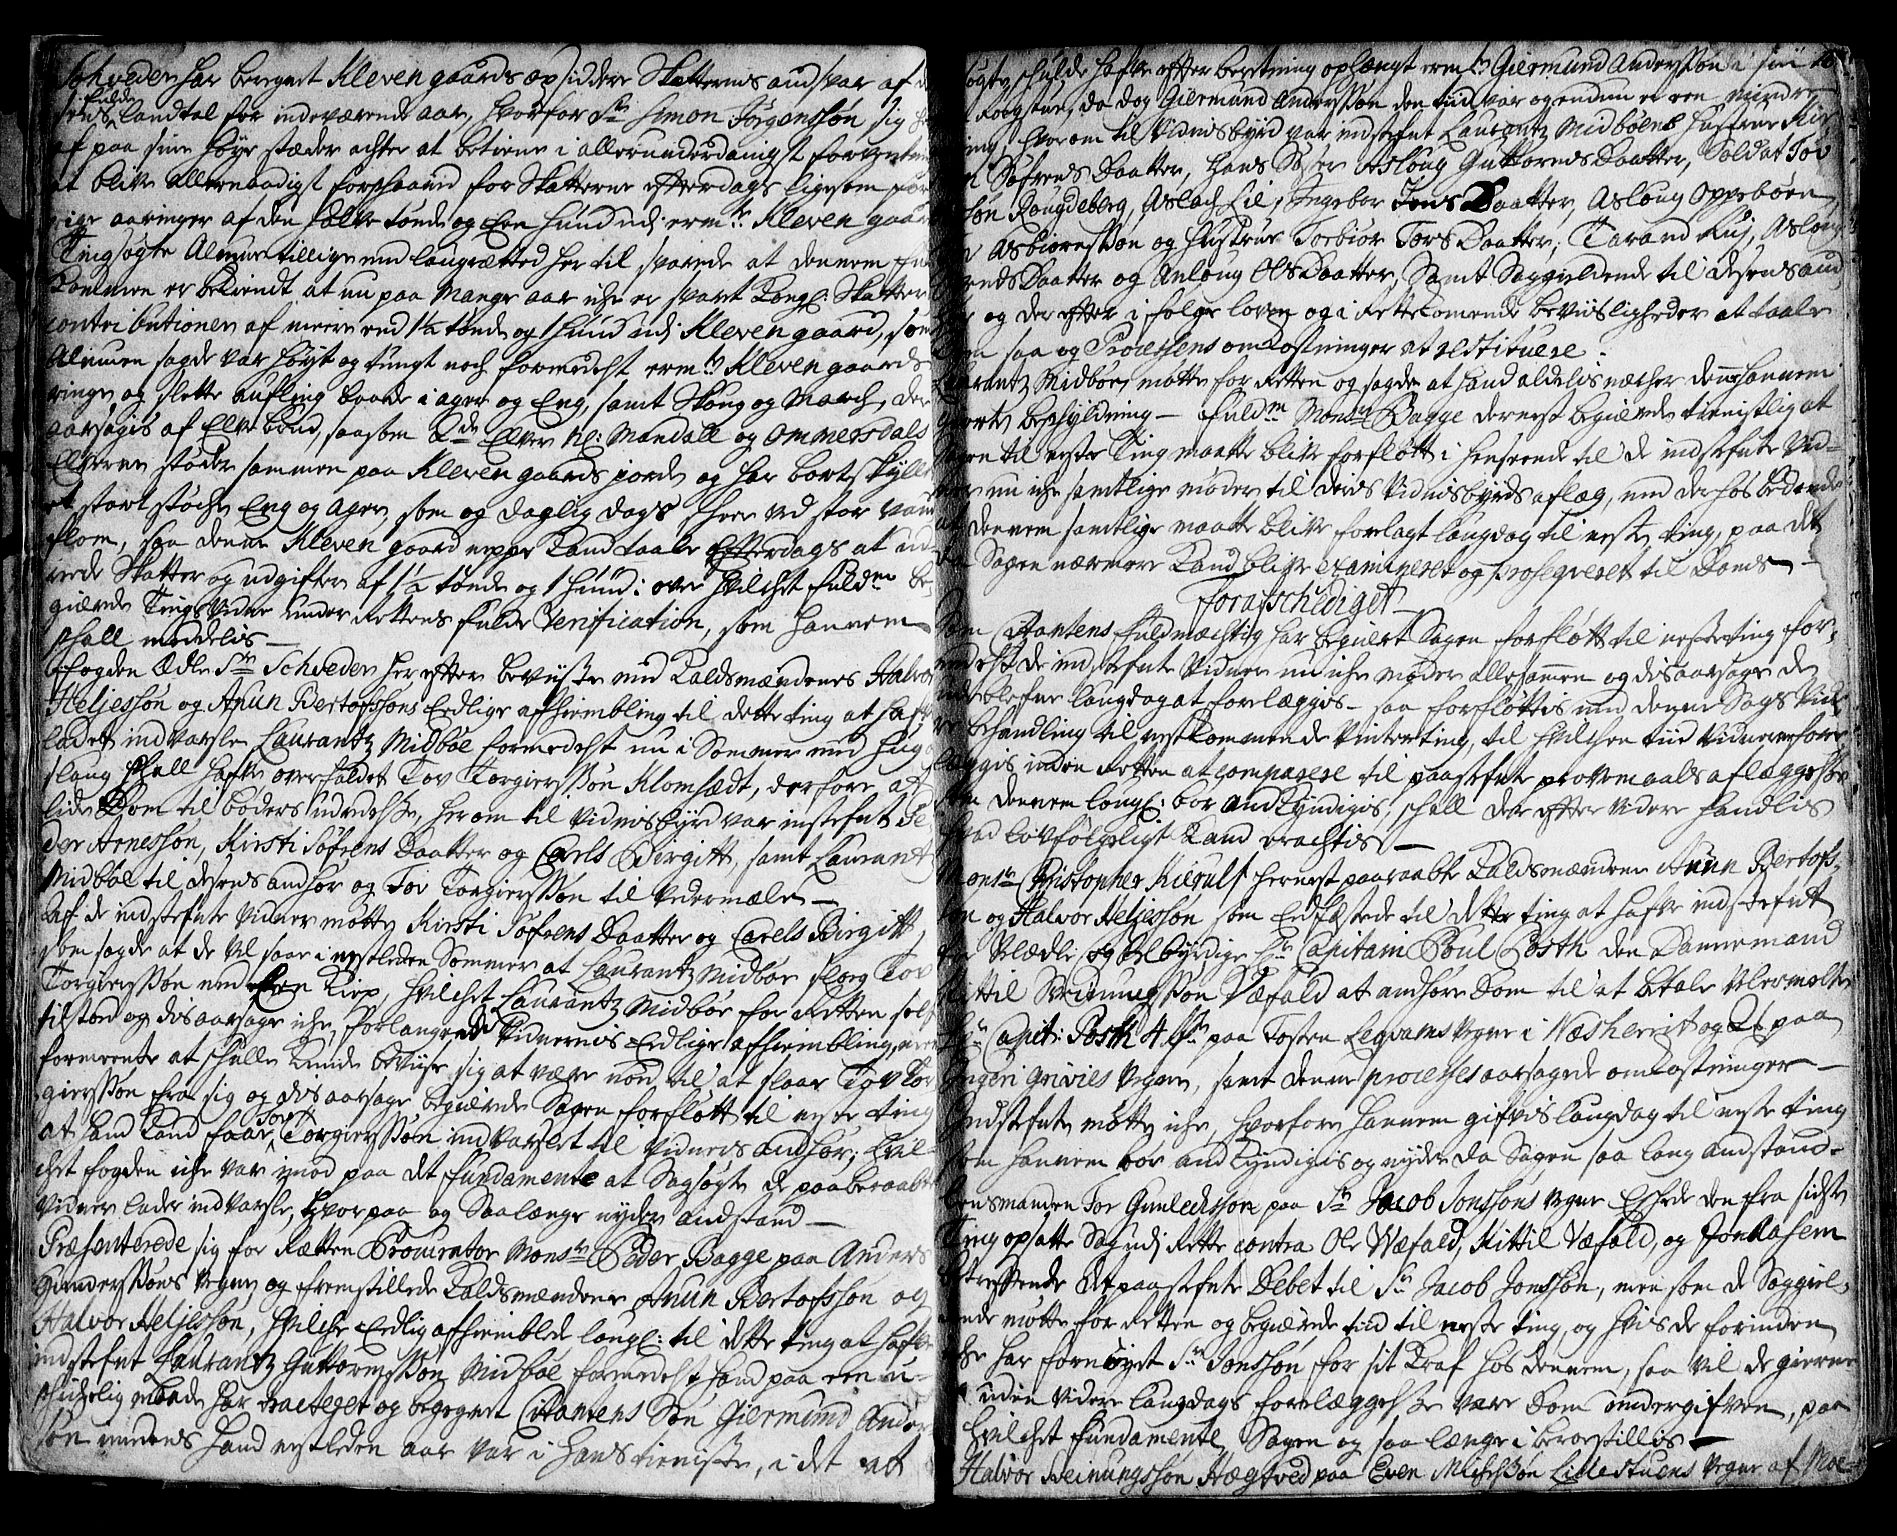 Schweder har beregnet Kleven gaards opsiddere Skatternes andsvar af
fulde
Landtal for indeværende aar, hvorfor Sr Simon Jørgenssøn sig
af paa sine høye stæder achter at betiene i allerunderdanigst forvent
at blive allernaadigst forschaanet for Skatterne efterdags ligesom for
rige aaringer af den halve tønde og Een hund udj ermte Kleven gaard
Tingsøgte Almue tillige med laugrætted her til svarede at dennem fuld
kommen er bekiendt at nu paa mange aar iche er svaret Kongl: Skatter
contributioner af meere end 1½ tønde og 1 hund udj Kleven gaard, som
Almuen sagde var høyt og tungt noch formedelst ermte Kleven gaards
ringe og slette aufling baade i ager og Eng, samt Skoug og March, der
aarsagis af Elve brud, saasom 2de Elver Nl: Mandall og Ommersdals
Elverne støder sammen paa Kleven gaards jorde og har bort schyllet
et stort støche Eng og ager, som og daglig dags scheer ved stor vand
flom, saa denne Kleven gaard neppe kand taale efterdags at ud-
rede Skatter og udgifter af 1½ tønde og 1 hund: over hvilchet fuldm be-
giærede Tings vidne under Rettens fulde verification, som hannem
schall meddelis —
Fogden Ædle Sr Schweder her efter beviiste med Kaldsmændenes Halvor
Heljessøn og Anun Bertofssøns Eedlige afhiembling til dette ting at hafve
ladet indvarsle Laurantz Midbøe formedelst nu i Sommer med hug og
slaug schall hafve overfaldet Tov Torgierssøn Klomsædt, derfore at
lide Dom til bøders udredelse, herom til vidnisbyrd var instefnt Pe
der Arnessøn, Kirsti Søfrens Daatter og Carels Birgitt, samt Laurantz
Midbøe til desens andhør og Tov Torgierssøn til vedermæle —
Af de indstefnte vidner møtte Kirsti Søfrens Daatter og Carels Birgitt,
som sagde at de vel saae i nestleden Sommer at Laurantz Midbøe slog Tov
Torgierssøn med een Kiep, hvilchet Laurantz Midbøe for Retten selv
tilstod og disaarsage iche forlangede vidnernis Eedlige afhiembling, men
formeente at schulle kunde beviise sig at være nød til at slaae Tov Tor
gierssøn fra sig og disaarsage begiærede Sagen forfløtt til neste ting
Tov
at hand kand faae Torgierssøn indvarslet til vidners andhør; hvil-
chet fogden iche var imod paa det fundamente at Sagsøgte de paaberaabte
vidner lader indvarsle, hvorpaa og saalænge nyder andstand —
Præsenterede sig for Rætten Procurator Monsr Peder Bagge paa Anders
Gunderssøns vegne og fremstillede Kaldsmændene Anun Bertofssøn og
Halvor Heljessøn, hvilche Eedlig afhiemblede laugl: til dette ting at hafve
indstefnt Laurantz Guttormssøn Midbøe formedelst hand paa een u-
schichelig maade har tracteret og begegnet Citantens Søn Giermund Anders
søn imedens hand nestleden aar var i hans tieniste, i det at
søgte schulde hafve efter beretning ophængt ermte Giermund Anderssøn i sin
Roegstue, da dog Giermund Anderssøn den tiid var og endnu er een mindre
ring, hvorom til vidnisbyrd var indstefnt Laurantz Midbøens hustrue Kir
Søfrens Daatter, hans Søster Aslaug Guttorms Daatter, Soldat Tov
søn Rougdeberg, Aslach Lie, Ingebor Jens Daatter, Aslaug Oppebøen
Asbiørnssøn og hustrue Torbior Tors Daatter, Tarand Ruj, Aslaug
Daatter og Anlaug Ols Daatter, Samt Saggieldende til desens and
og der efter i følge loven og i Rette komende beviisligheder at taale
Dom saa og Processens omkostninger at restituere.
Laurantz Midbøe møtte for Retten og sagde at hand aldelis næcher denne hannem
giorte beschyldning — fuldm Monsr Bagge dernest begiærede tienistlig at
Sagen til neste Ting maatte blive forfløtt i henseende til de indstefnte vid-
ner nu iche samtlige møder til deris vidnisbyrds aflæg, med der hos bedende
at dennem samtlige maatte blive forelagt laugdag til neste ting, paa det
Sagen nærmere kand blive examineret og prosequeret til Doms —
Forafschediget —
Som Citantens fuldmæchtig har begiært Sagen forfløtt til neste ting for-
medelst de indstefnte vidner nu iche møder allesammen og disaarsage de
udeblefne laugdag at forelæggis — saa forfløttis med denne Sags vid
re behandling til nestkommende vinterting, til hvilchen tiid vidnerne fore
læggis inden Retten at comparere til paastefnte provemaals aflæggelse
som dennem laugl: bør andkyndigis, schall der efter videre handlis
hvad lovfølgeligt kand erachtis —
Monsr Christopher Kierulf hernest paaraabte Kaldsmændene Anun Bertofs-
søn og Halvor Heljessøn som Eedfæstede til dette ting at hafve indstefnt
for Vel Ædle og velbyrdige Hr Capitain Poul Posth den Dannemand
Kittil Sveinungssøn Væfald at andhøre Dom til at betale velermelte
Hr Capit: Posth 4 Rdr paa Tosten Legvams vegne i Næsherret og 2 paa
Ingeri Grivies vegne, samt denne processes aarsagede omkostninger —
Indstefnte møtte iche, hvorfore hannem gifvis laugdag til neste ting
som hannem bør andkyndigis og nyder da Sagen saa lang andstand —
Lensmanden Tor Gunlechssøn paa Sr Jacob Jonssøns vegne Eschede den fra sidste
Ting opsatte Sag udj Rette contra Ole Wæfald, Kittil Væfald, og Jon Kasem
betreffende det paastefnte Debet til Sr Jacob Jonssøn, men som de Saggiel-
dende møtte for Retten og begiærede tiid til neste ting, og hvis de forinden
iche har fornøyet Sr Jonssøn for sit Kraf hos dennem, saa vil de gierne
uden videre laugdags forelæggelse være Dom undergifven, paa
hvilchet fundamente Sagen og saa længe i beroe stillis —
Halvor Sveinungssøn Hægtved paa Even Michelssøn Lillestuens vegne af Moe-